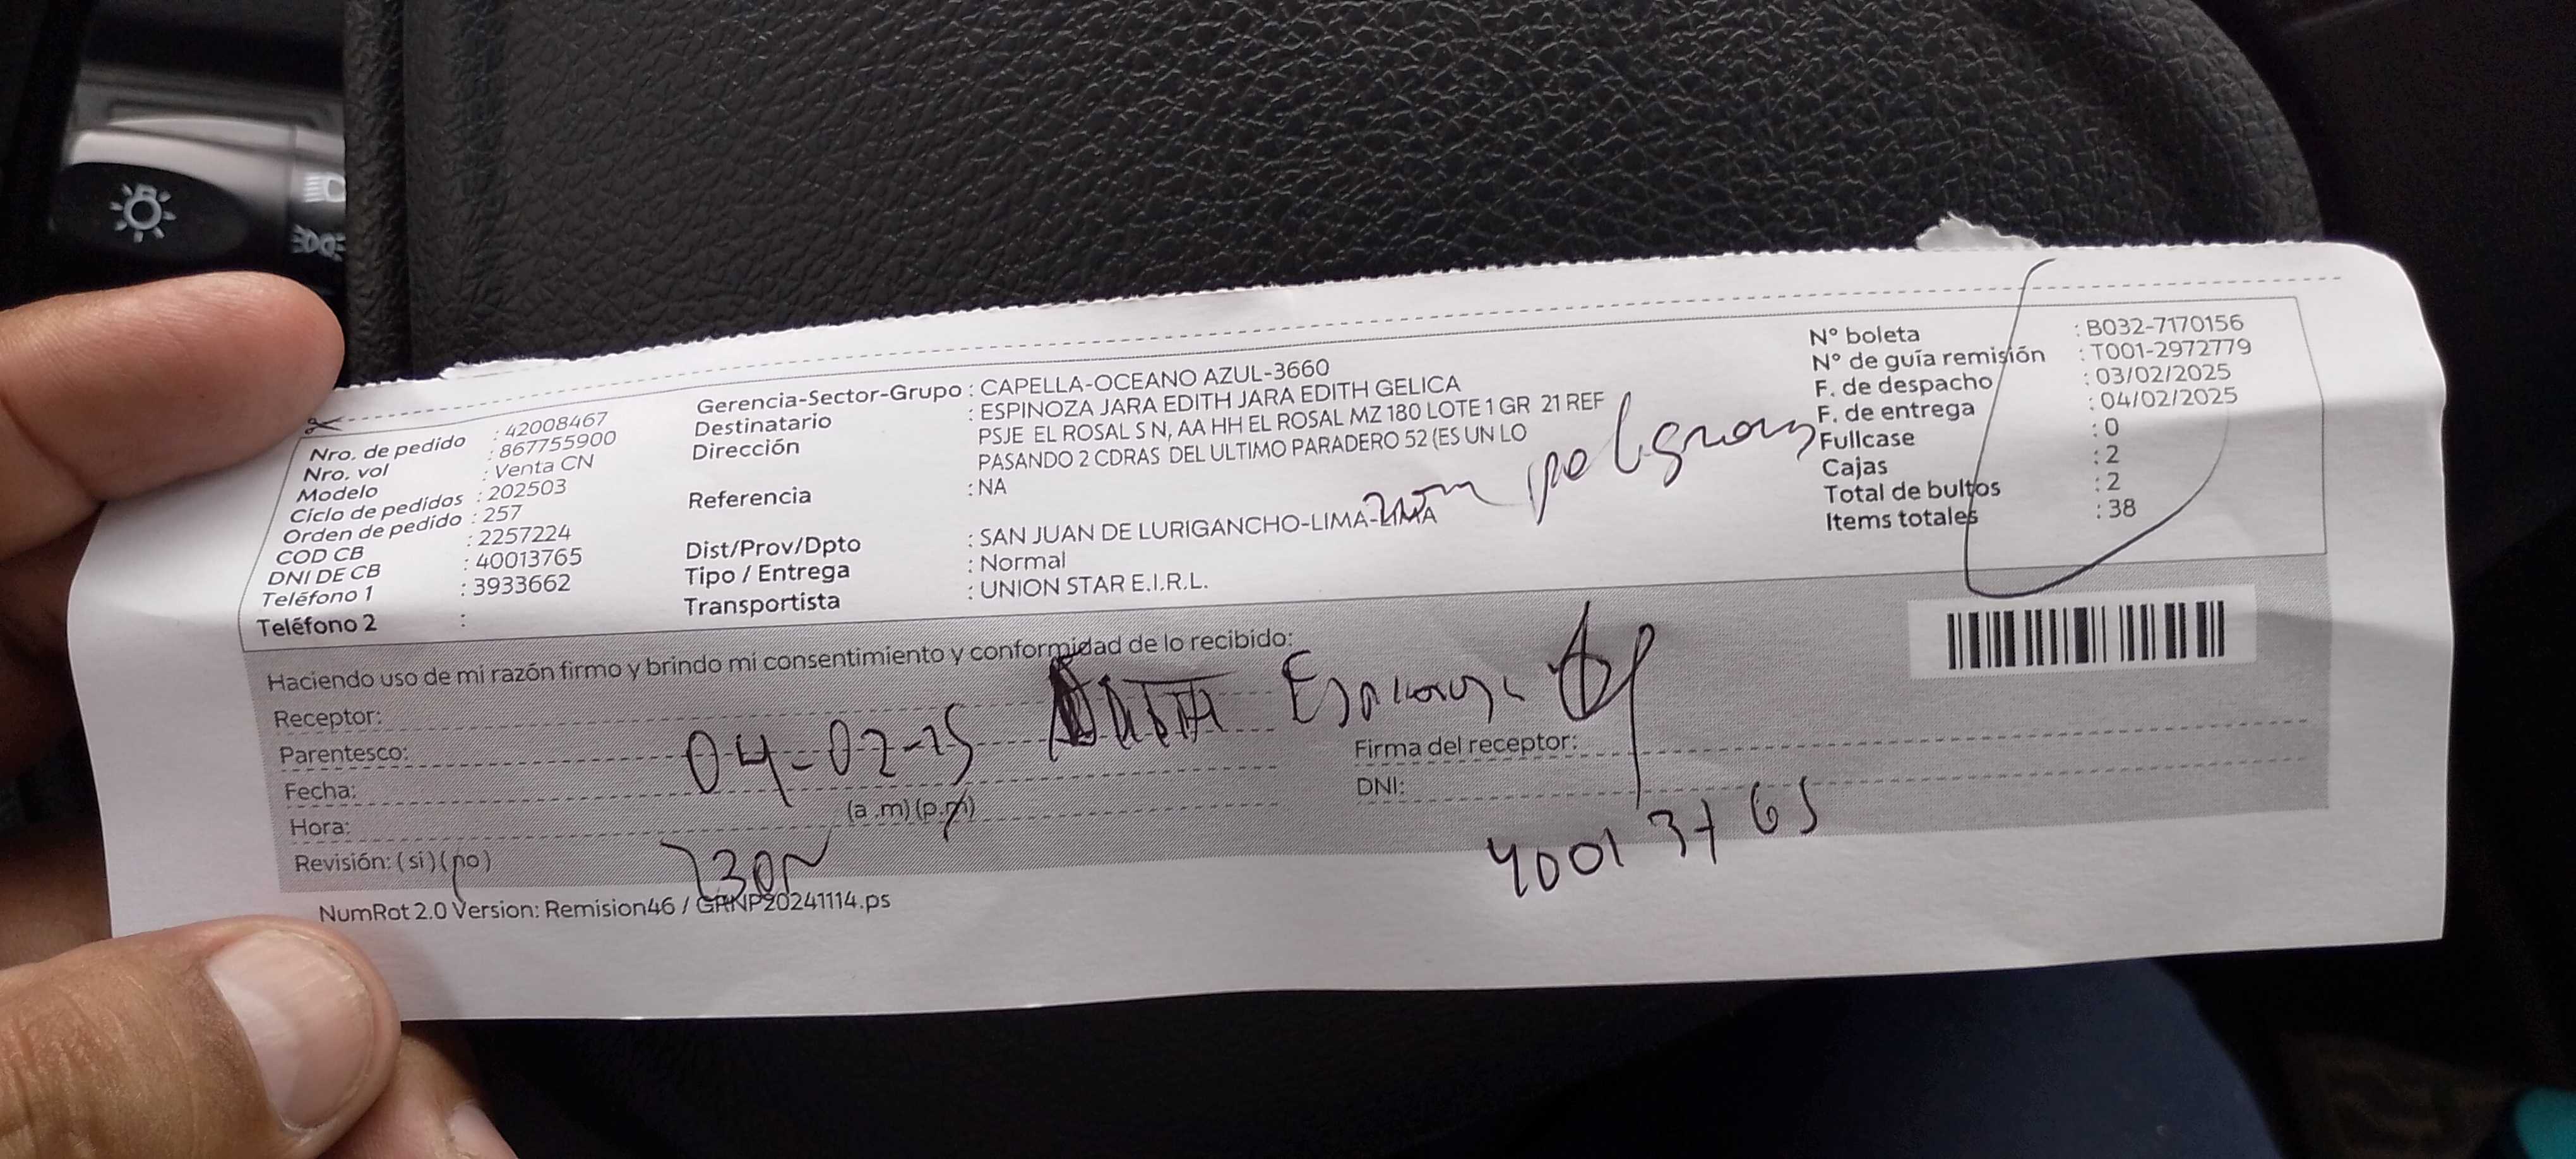 Nro. de pedido : 42008467
Nro. vol : 867755900
Modelo : Venta CN
Ciclo de pedidos : 202503
Orden de pedido : 257
COD CB : 2257224
DNI DE CB : 40013765
Teléfono 1 : 3933662
Teléfono 2 :
Gerencia-Sector-Grupo : CAPELLA-OCEANO AZUL-3660
Destinatario : ESPINOZA JARA EDITH JARA EDITH GELICA
Dirección PSJE EL ROSAL S N, AA HH EL ROSAL MZ 180 LOTE 1 GR 21 REF
PASANDO 2 CDRAS DEL ULTIMO PARADERO 52 (ES UN LO
Referencia : NA
Dist/Prov/Dpto : SAN JUAN DE LURIGANCHO-LIMA-LIMA
Tipo / Entrega : Normal
Transportista : UNION STAR E.I.R.L.
N° boleta : B032-7170156
N° de guía remisión : T001-2972779
F. de despacho : 03/02/2025
F. de entrega : 04/02/2025
Fullcase : 0
Cajas : 2
Total de bultos : 2
Items totales : 38
Haciendo uso de mi razón firmo y brindo mi consentimiento y conformidad de lo recibido:
Receptor:
Parentesco:
Fecha: 04-02-25
Hora: (a.m) (p.m)
Revisión: (si) (no)
Firma del receptor:
DNI: 40013765
NumRot 2.0 Version: Remision46 / GRNP20241114.ps